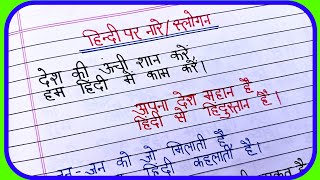 हिन्दी पर नारे/स्लोगन
देश की ऊंची शान करें
हम हिंदी में काम करें।
अपना देश महान है
हिंदी से हिंदुस्तान है।
जन-जन को जो मिलाती है
हिंदी कहलाती है।